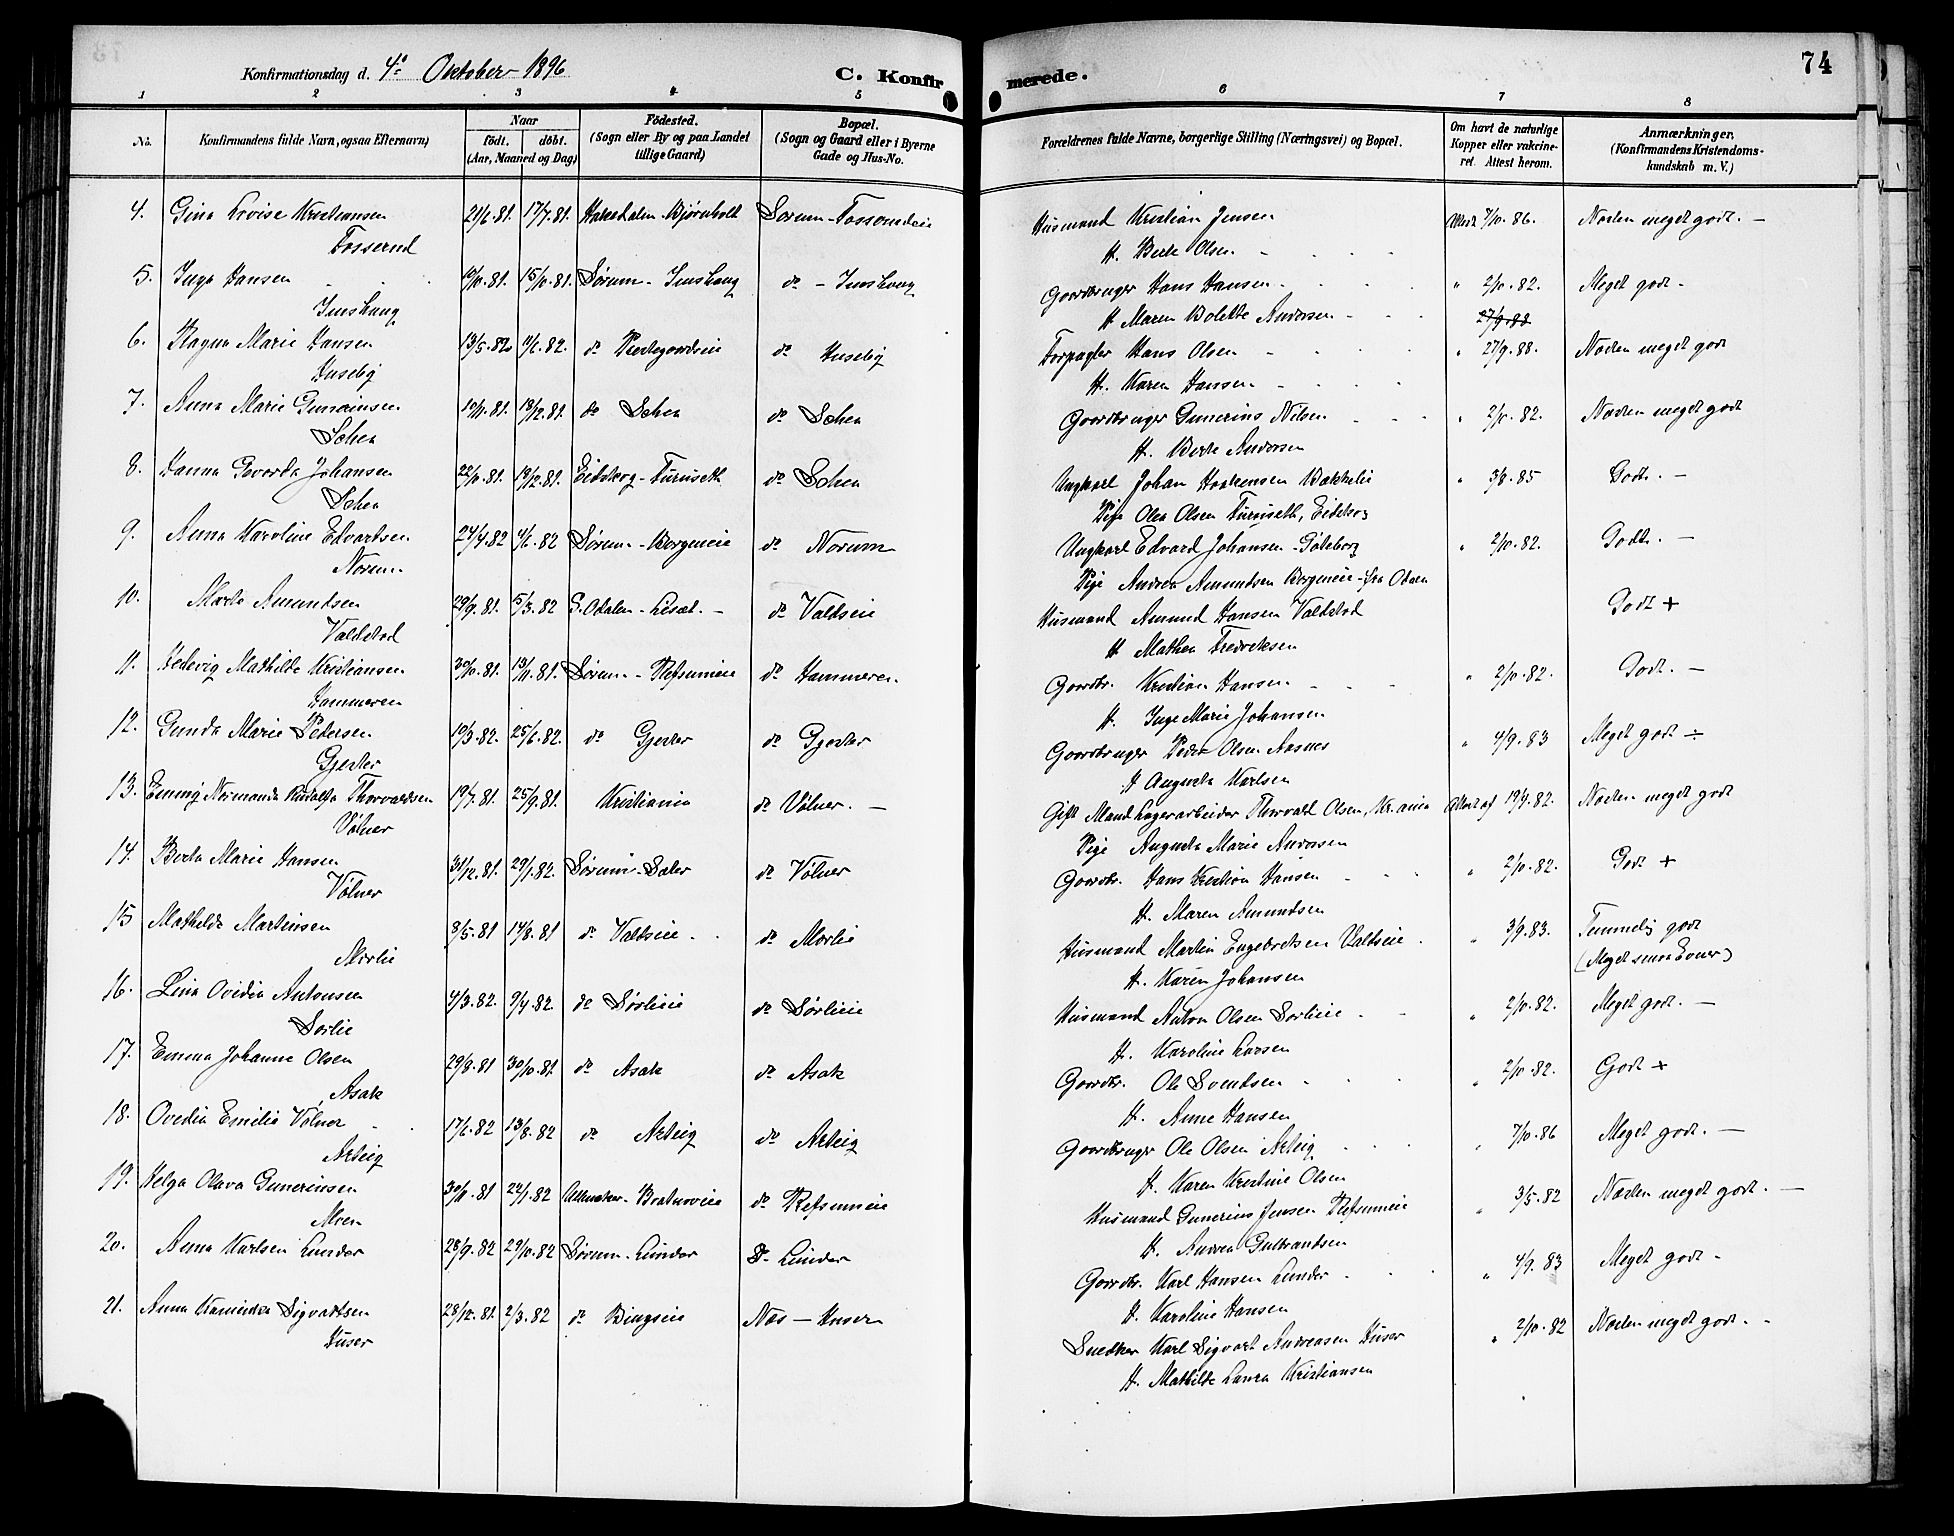 74
Konfirmationsdag d. 4de Oktober 1896
C. Konfirmerede.
1 2 3 4 5 6 7 8
No.
Konfirmandens fulde Navn, ogsaa Efternavn)
Naar
födt. döbt.
(Aar, Maaned og Dag)
Födested.
(Sogn eller By og paa Landet
tillige Gaard)
Bopæl.
(Sogn og Gaard eller i Byerne
Gade og Hus-No.
Forældrenes fulde Navne, borgerlige Stilling (Næringsvei) og Bopæl.
Om havt de naturlige
Kopper eller vakcine-
ret. Attest herom.
Anmærkninger.
(Konfirmandens Kristendoms-
kundskab m. V.)
4. Gina Lovise Kristiansen 21/6.81. 17/7.81. Hakedalen-Bjørnholt Sørum - Husmand Kristian Jensen Attest 7/10.86. Næsten meget godt. -
Fosserud H. Berte Olsen
5. Inga Hansen 15/10.81. Sørum - Imshaug do - Imshaug Gaardbruger Hans Hansen " 2/10.82. Meget godt -
Imshaug H. Maren Bolette Andersen 27/9.88
6. Ragna Marie Hansen 13/5.82. 11/6.82. do Prestegaardseie do Huseby Forpagter Hans Olsen " 27/9.88. Næsten meget godt
Huseby H. Karen Hansen
7. Anna Marie Gunerinsen 18/12.81. do Schea do Schea Gaardbruger Gunerius Nilsen " 2/10.82. Næsten meget godt
Schea H. Berte Andersen
8. Hanna Johansen 22/10.81. 19/12.81. Eidskog - Furuseth do Schea Ungkarl Johan Haakensen Bakkelie " 3/8.85 Godt. -
Schea Pige Olea Olsen Furuseth, Eidskog
9. Anna Karoline Edvartsen 24/4.82 4/6.82 Sørum - Borgeneie do Norum Ungkarl Edvard Johansen - Göteborg " 2/10.82. Godt. -
Norum. Pige Andrea Amundsen Borgeneie - fra Odalen
10. Marte Amundsen 29/9.81. 5/3.82 S. Odalen - do Valdseie Husmand Amund Hansen Valdstad Godt +
Valdstad H. Mathea Fredriksen
11. Hedevig Mathilde Kristiansen 30/10.81. 13/11.81. Sørum - Refsumeie do Hammeren. Gaardbr. Kristian Hansen " 2/10.82. Godt. -
Hammeren H. Inge Marie Johansen
12. Gunda Marie Pedersen 10/3.82. 25/6.82. do Gjester do Gjester Gaardbruger Peder Olsen Aasnes " 4/9.83 Meget godt ÷
Gjester H Augusta Karlsen
13. Emmy Normanda Rudolfa Thorvaldsen 19/7.81. 25/9.81. Kristiania do Vølner. - Gift Mand Lagerarbeider Thorvald Olsen, Kr.ania Attest af 19/9.82. Næsten meget godt
Vølner Pige Augusta Marie Andersen
14. Berta Marie Hansen 31/12.81. 29/1.82. Sørum - Sæter do Vølner Gaardbr. Hans Kristian Hansen " 2/10.82. Godt +
Vølner H. Maren Amundsen
15 Mathilde Martinsen 8/5.81 14/8.81 do Valdseie. do Morlie Husmand Martin Engebretsen Valdseie " 3/9.83. Temmelig godt
Morlie H. Karen Johansen (Meget smaa Evner)
16. Lina Ovidia Antonsen 4/3.82. 9/4.82. do Sørlieie do Sørlieie Husmand Anton Olsen Sørlieie " 2/10.82. Meget godt. -
Sørlie H. Karoline Larsen
17. Emma Johanne Olsen 29/8.81 30/10.81. do Asak do Asak Gaardbr. Ole Svendsen " 2/10.82. Godt +
Asak H. Anne Hansen
18. Ovedia Emilie Vølner 17/6.82 13/8.82 do Arteig do Arteig Gaardbruger Ole Olsen Arteig " 7/10.86 Meget godt. -
Arteig H. Karen Kristine Olsen
19. Helga Olava Gunerinsen 30/11.81 22/1.82 Ullensaker - do Refsumeie Husmand Gunerius Jensen Refsumeie " 3/5.82 Næsten meget godt. -
Moen H. Andrea Gulbrandsen
20. Anna Karlsen Lunder 28/9.82 29/10.82 Sørum - Lunder S- Lunder Gaardbr. Karl Hansen Lunder " 4/9.83 Meget godt -
H. Karoline Hansen
21. Anna Sigvartsen 28/12.81. 2/3.82 do Bingseie Næs - Huser Snedker Karl Sigvart Andreasen Huser " 2/10.82 Næsten meget godt. -
Huser H. Mathilde Laura Kristiansen